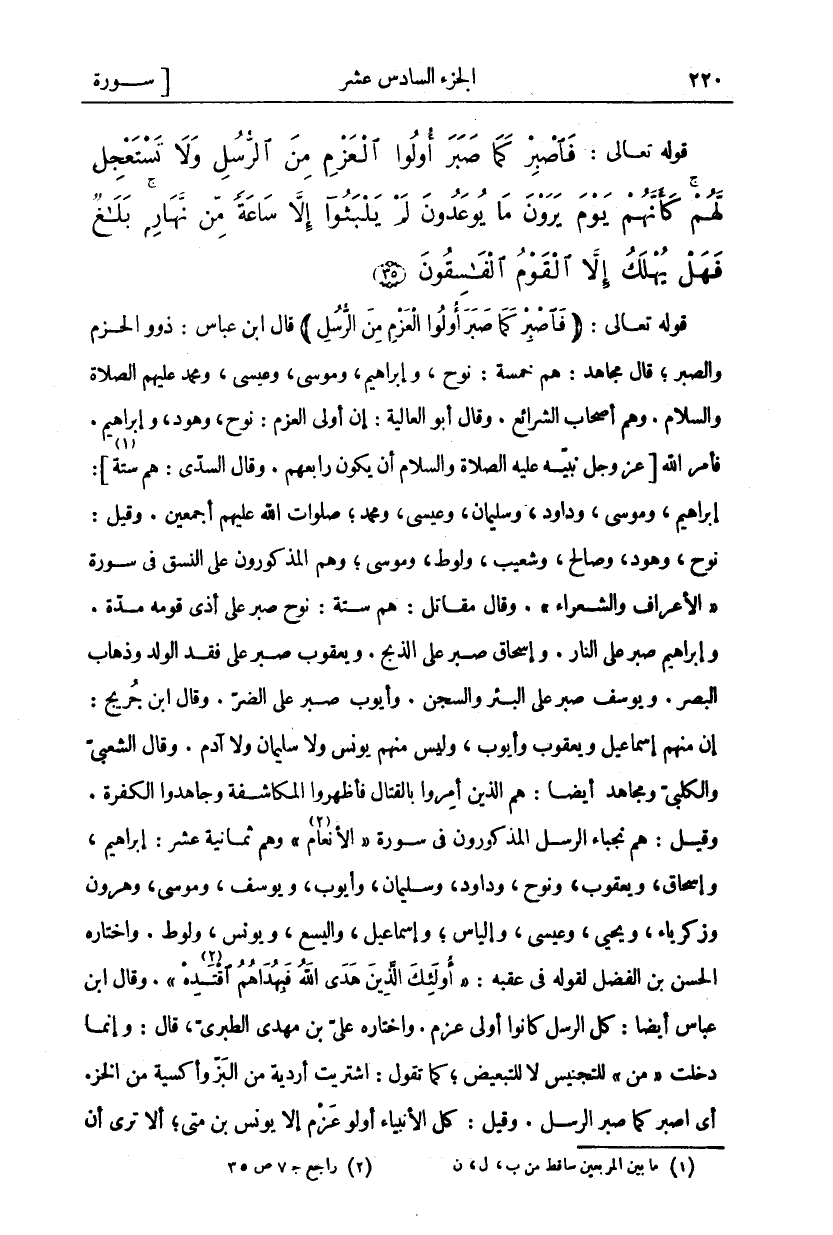 ٢٢٠ الجزء السادس عشر [ ســورة
قوله تعالى : فَٱصْبِرْ كَمَا صَبَرَ أُولُوا ٱلْعَزْمِ مِنَ ٱلرُّسُلِ وَلَا تَسْتَعْجِل
لَّهُمْ ۚ كَأَنَّهُمْ يَوْمَ يَرَوْنَ مَا يُوعَدُونَ لَمْ يَلْبَثُوٓا إِلَّا سَاعَةً مِّن نَّهَارٍ ۚ بَلَـٰغٌ
فَهَلْ يُهْلَكُ إِلَّا ٱلْقَوْمُ ٱلْفَـٰسِقُونَ (٣٥)
قوله تعالى : ﴿ فَٱصْبِرْ كَمَا صَبَرَ أُولُوا الْعَزْمِ مِنَ الرُّسُلِ ﴾ قال ابن عباس : ذوو الحزم
والصبر ؛ قال مجاهد : هم خمسة : نوح ، وإبراهيم، وموسى، وعيسى ، ومحمد عليهم الصلاة
والسلام . وهم أصحاب الشرائع . وقال أبو العالية : إن أولى العزم : نوح، وهود، وإبراهيم .
فأمر الله [ عز وجل نبيّـه عليه الصلاة والسلام أن يكون رابعهم . وقال السدّى : هم ستة (١) ] :
إبراهيم ، وموسى ، وداود ، وسليمان، وعيسى، ومحمد ؛ صلوات الله عليهم أجمعين . وقيل :
نوح ، وهود، وصالح ، وشعيب ، ولوط، وموسى ؛ وهم المذكورون على النسق فى سـورة
« الأعراف والشـعراء » . وقال مقـاتل : هم سـتة : نوح صبر على أذى قومه مـدّة .
وإبراهيم صبر على النار . وإسحاق صـبر على الذبح . ويعقوب صـبر على فقـد الولد وذهاب
البصر . ويوسف صبر على البـئر والسجن . وأيوب صـبر على الضرّ . وقال ابن جُريج :
إن منهم إسماعيل ويعقوب وأيوب ، وليس منهم يونس ولا سليمان ولا آدم . وقال الشعبىّ
والكلبىّ ومجاهد أيضـا : هم الذين أمِروا بالقتال فأظهروا المكاشـفة وجاهدوا الكفرة .
وقيـل : هم نجباء الرسـل المذكورون فى سـورة « الأنعام (٢) » وهم ثمـانية عشر : إبراهيم ،
وإسحاق، ويعقوب، ونوح ، وداود، وسـليمان، وأيوب، ويوسف ، وموسى، وهرون
وزكرياء ، ويحيى ، وعيسى ، وإلياس ؛ وإسماعيل ، واليسع ، ويونس ، ولوط . واختاره
الحسن بن الفضل لقوله فى عقبه : « أُولَئِكَ الَّذِينَ هَدَى اللَّهُ فَبِهُدَاهُمُ اقْتَـدِهْ (٢) » . وقال ابن
عباس أيضا : كل الرسل كانوا أولى عزم . واختاره علىّ بن مهدى الطبرىّ، قال : وإنمـا
دخلت « من » للتجنيس لا للتبعيض ؛ كما تقول : اشتريت أردية من البَزّ وأكسية من الخز.
أى اصبر كما صبر الرسـل . وقيل : كل الأنبياء أولو عَزْم إلا يونس بن متى؛ ألا ترى أن
(١) ما بين المربعين ساقط من ب ، ل ، ن (٢) راجع جـ ٧ ص ٣٥